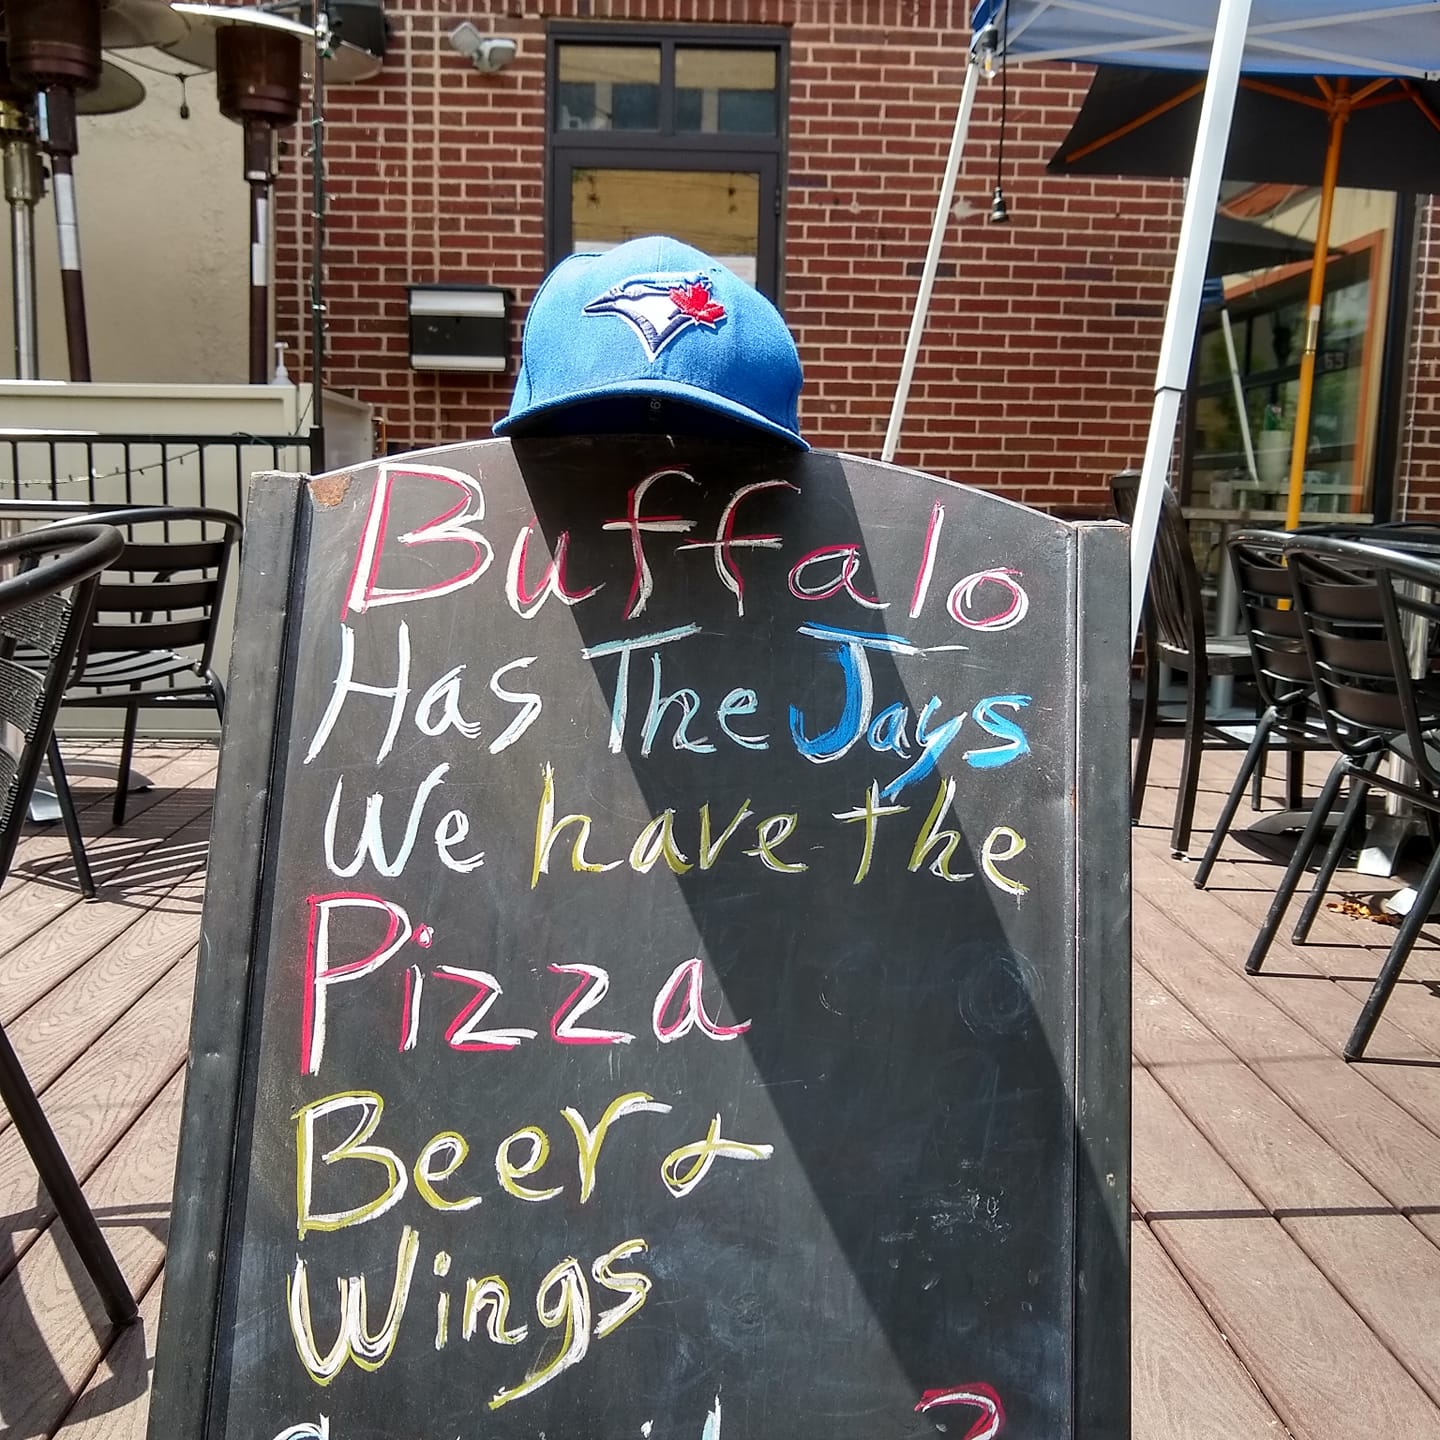 Buffalo
Has The Jays
We have the
Pizza
Beer &
Wings